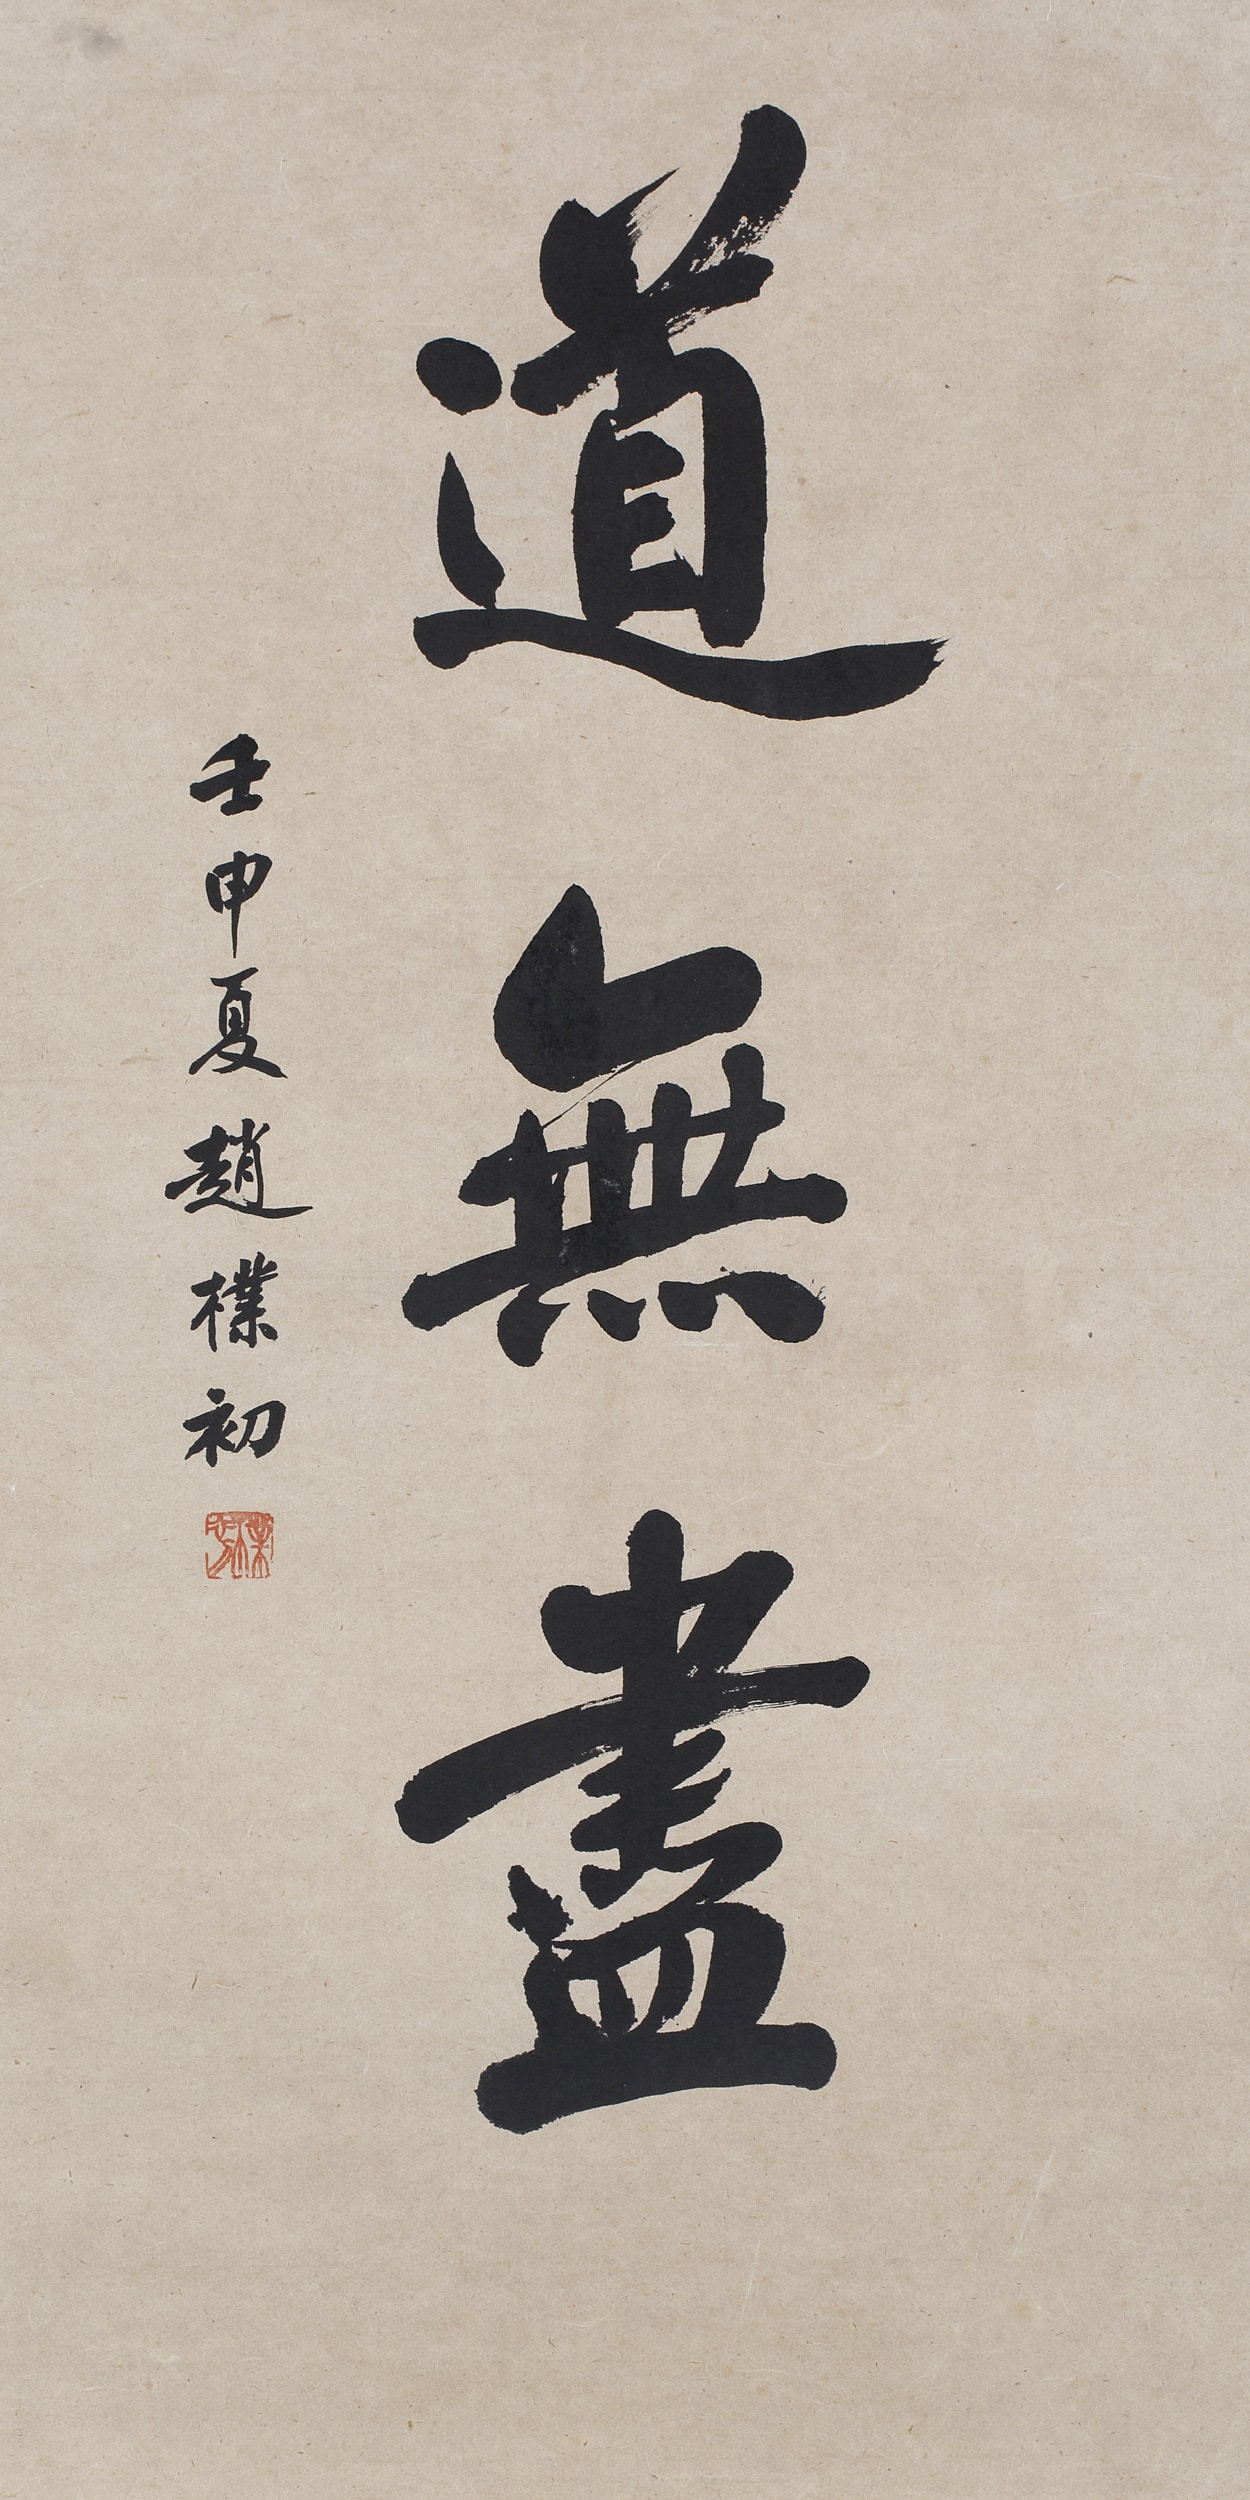 道無盡
壬申夏趙樸初